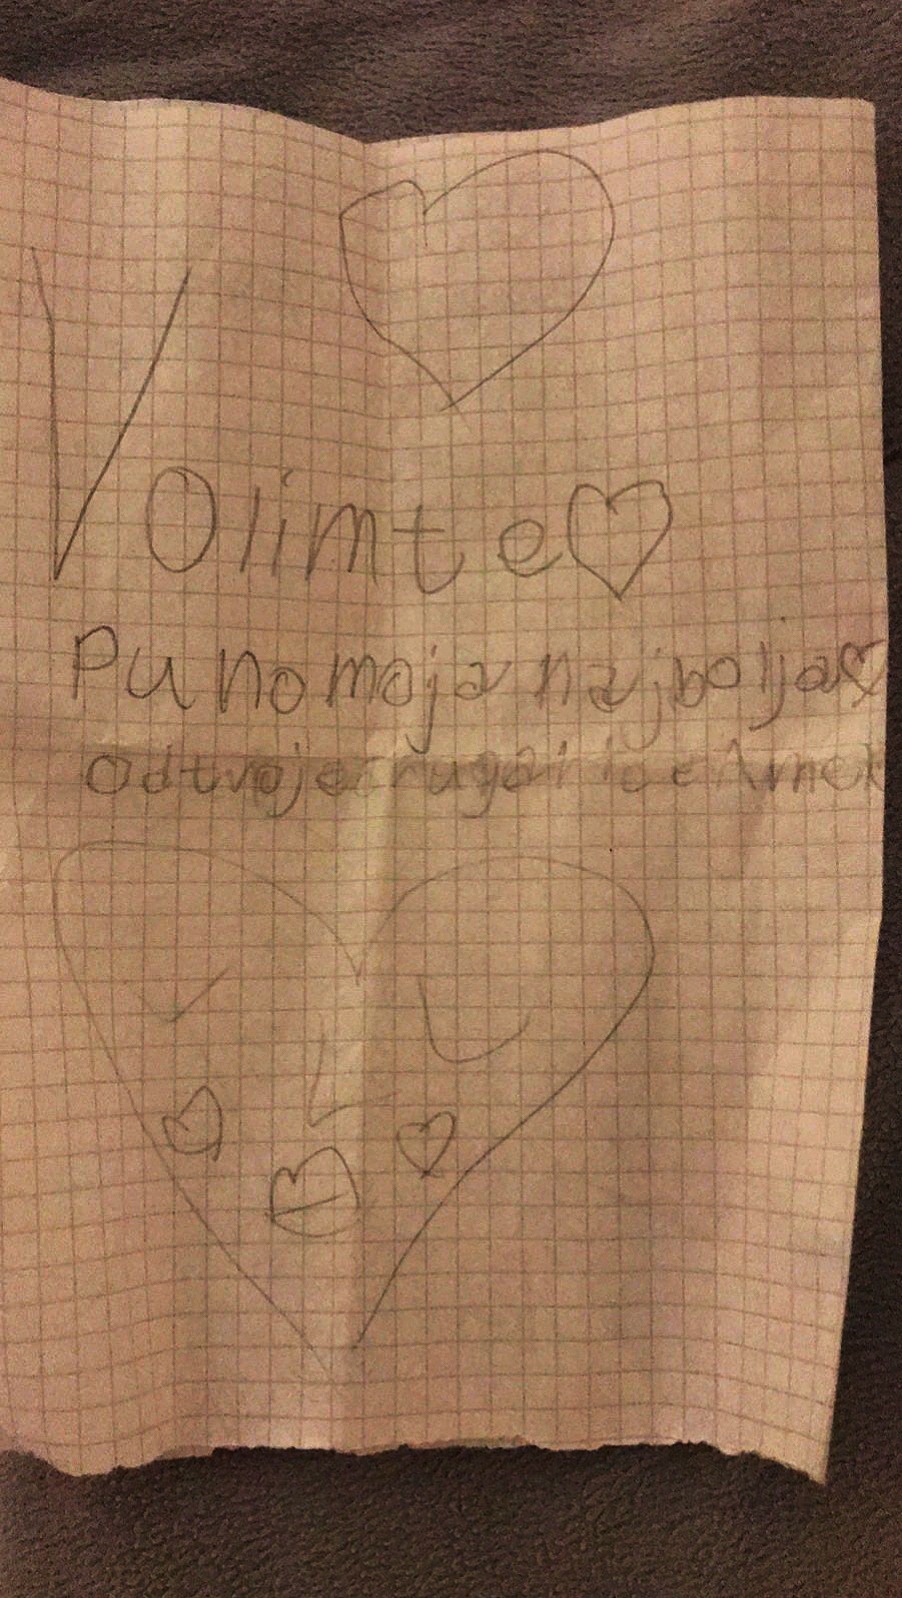 Volim te
Puno moja najbolja
Od tvoje drugarice